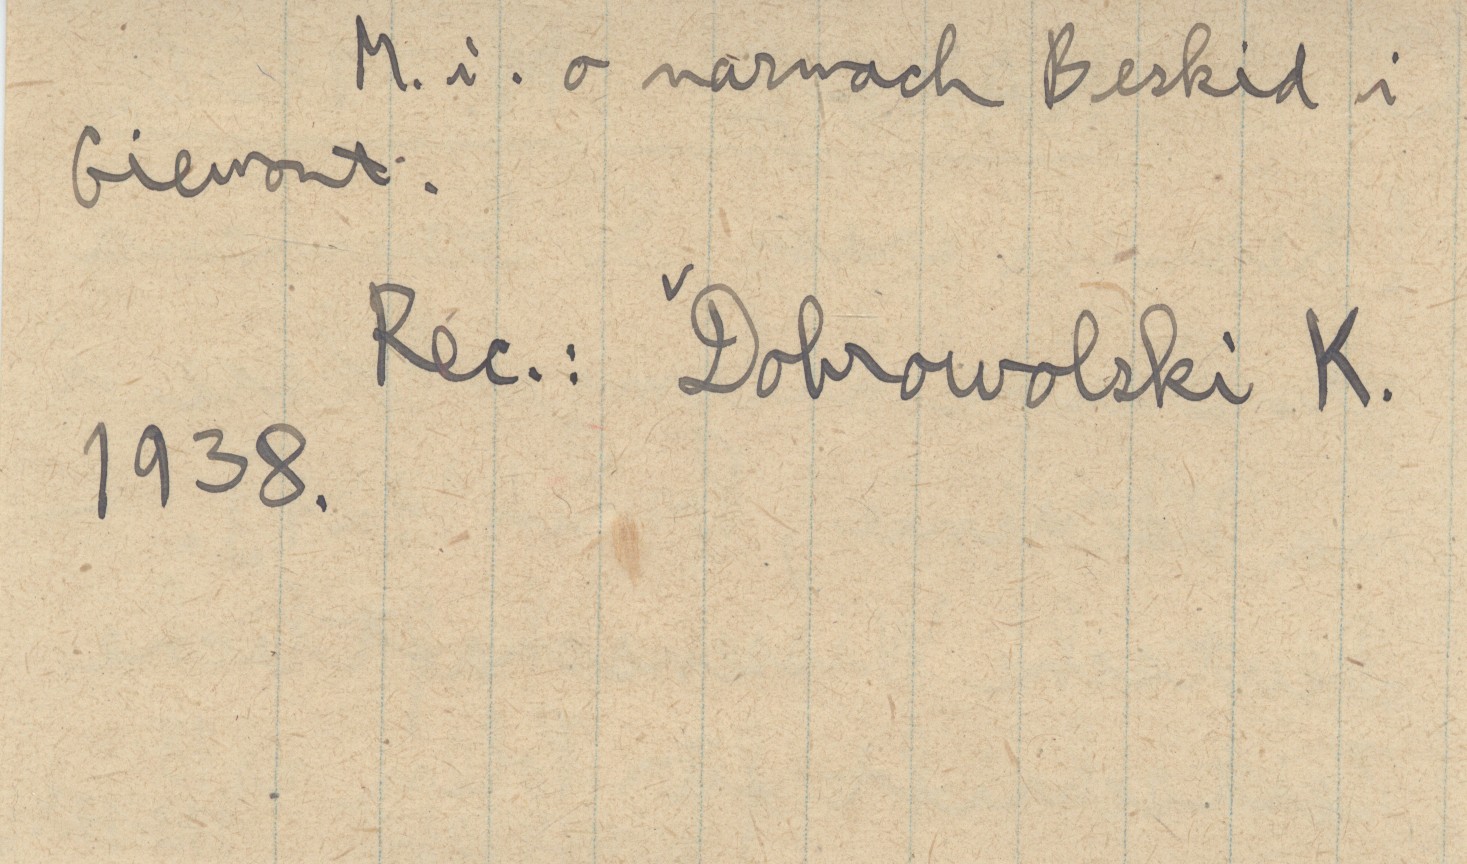 M. i. o nazwach Beskid i
Giewont.
Rec.: ✓Dobrowolski K.
1938.